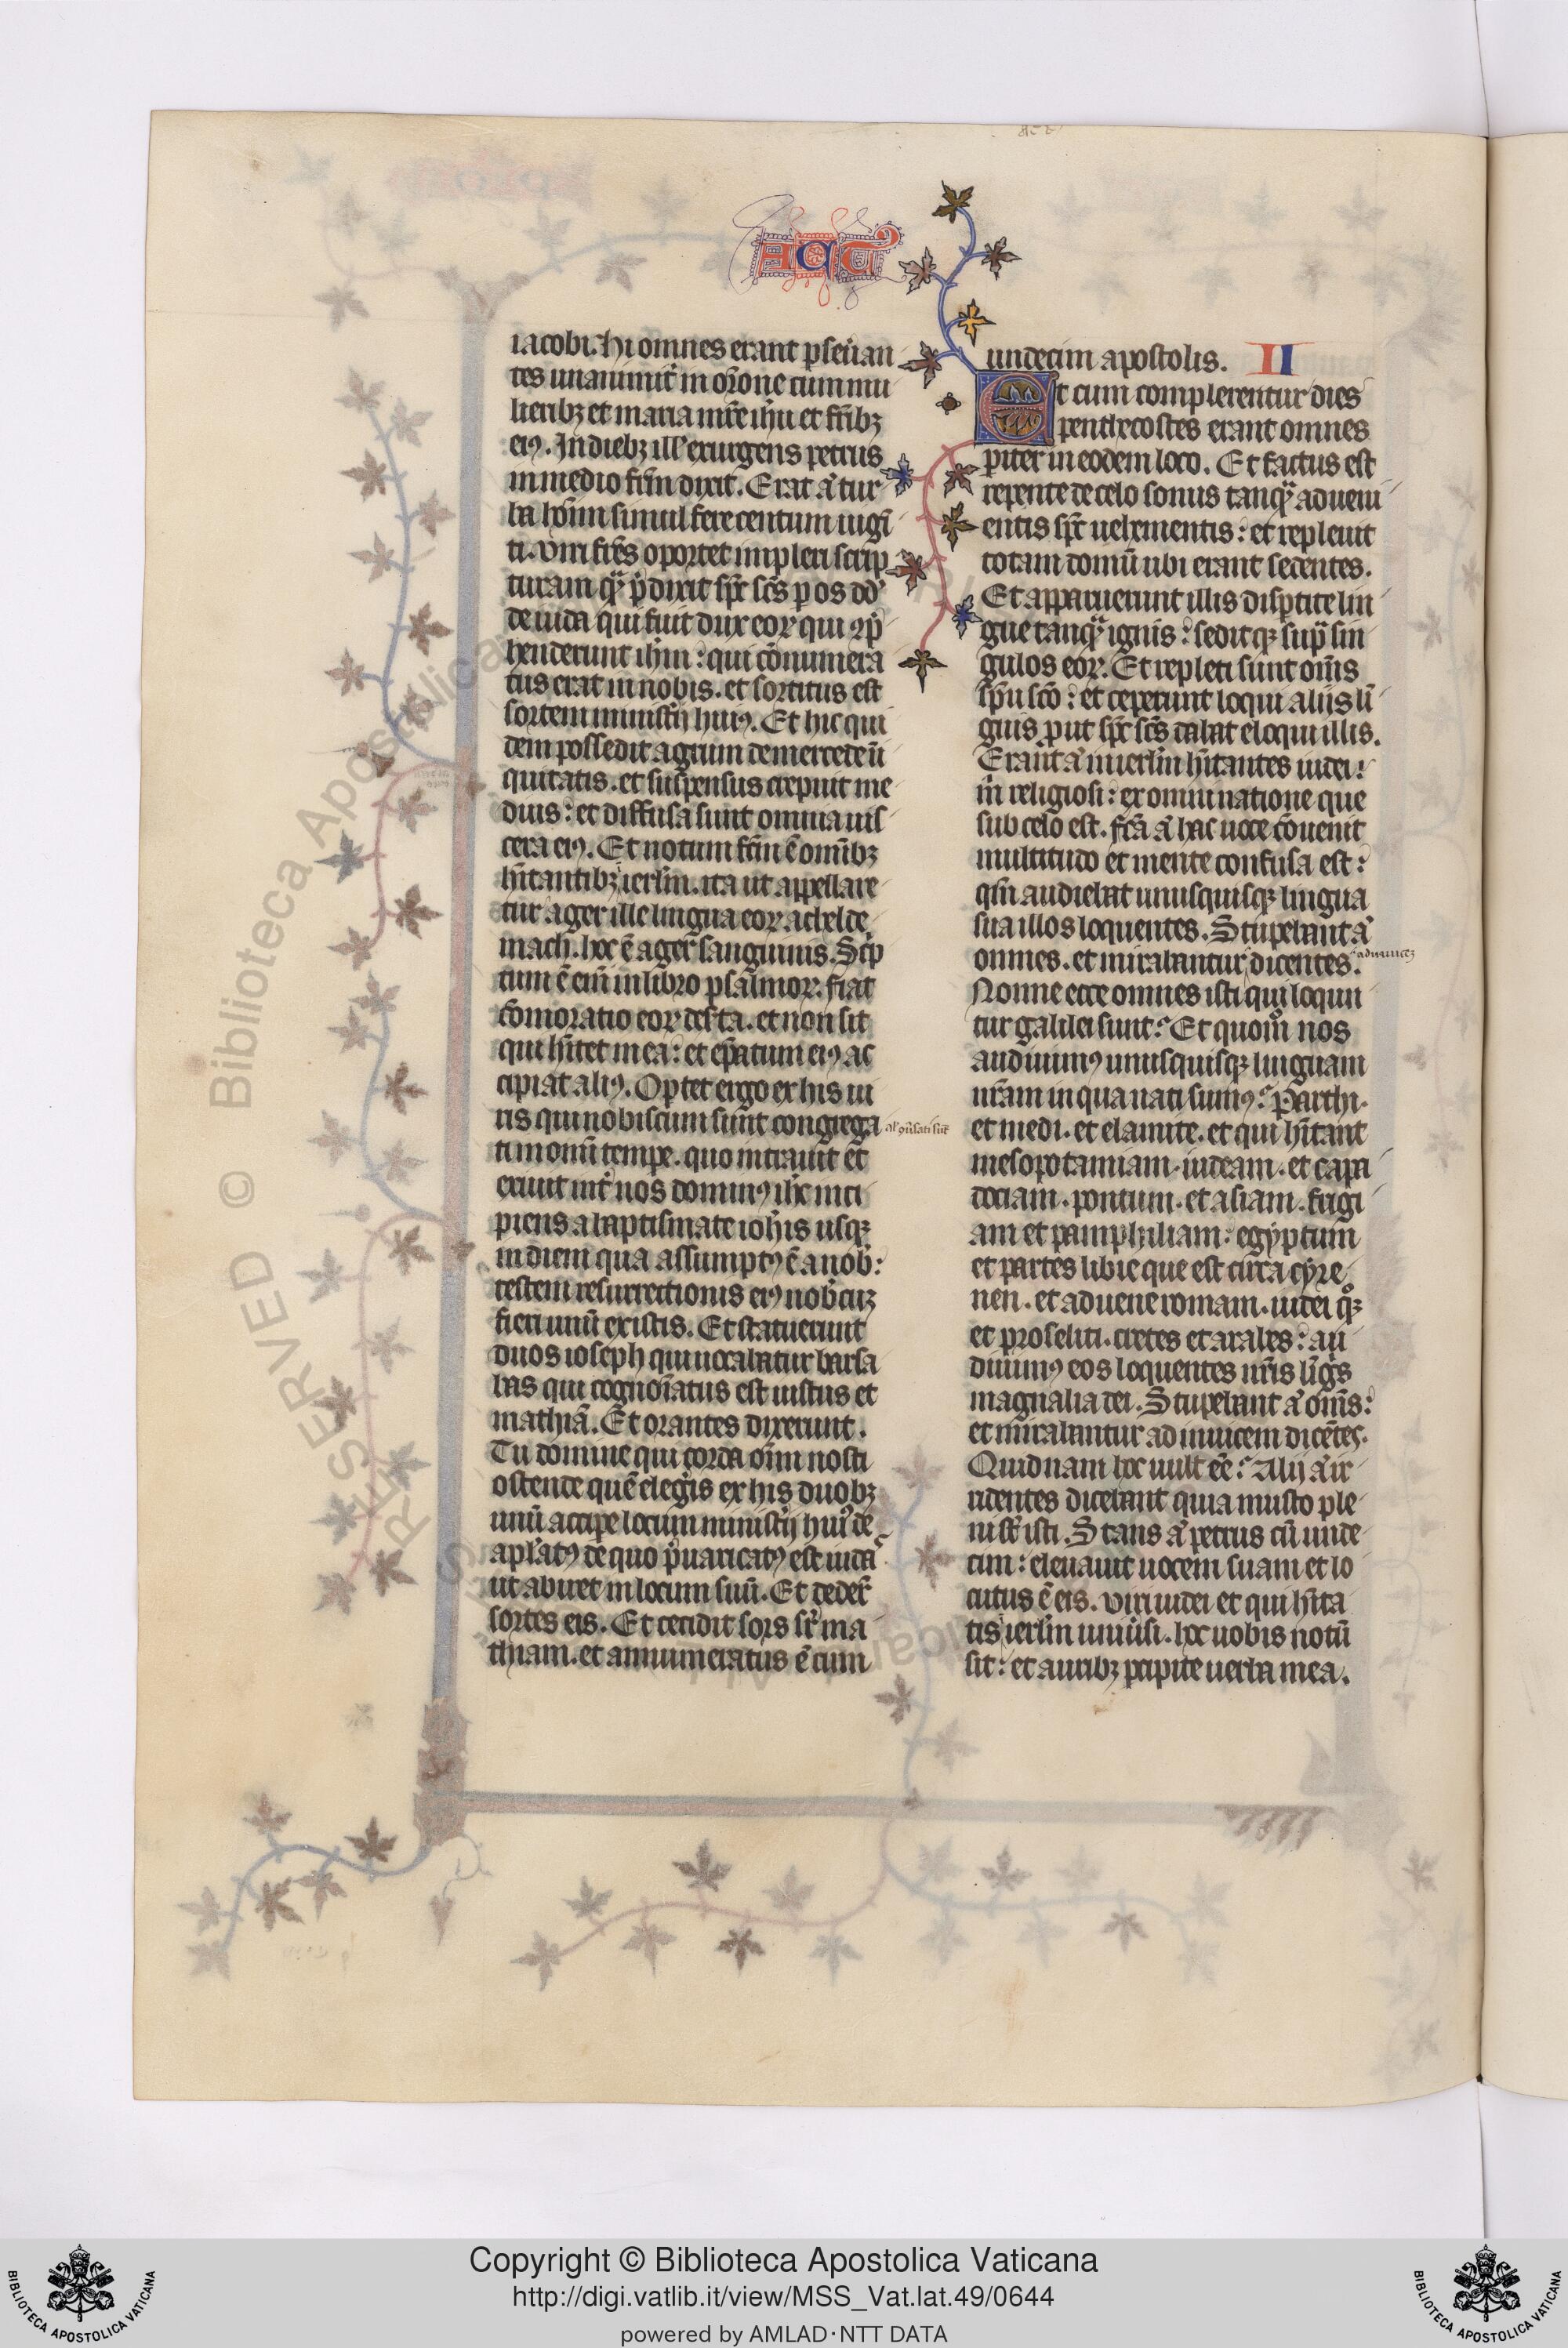 ACT
iacobi. hi omnes erant pseũan
tes unanimit̃ in or̃one cum mu
lieribꝫ et maria mr̃e ih̃u et fr̃ibꝫ
eiꝰ. In diebꝫ ill' exurgens petrus
in medio fr̃m dixit. Erat ãͭ tur
ba hoĩm simul fere centum uigĩ
ti. Viri fr̃es oportet impleri scrip
turam qͣ̃ p̃dixit sp̃c sc̃s p os dd̃
de iuda qui fuit dux eoꝝ qui ꝯp̃
henderunt ih̃m: qui cõnumera
tus erat in nobis. et sortitus est
sortem minist̃ij huiꝰ. Et hic qui
dem possedit agrum de mercede ĩi
quitatis. et suspensus crepuit me
dius: et diffusa sunt omnia uis
cera eiꝰ. Et notum fc̃m ẽ omĩbꝫ
h̃itantibꝫ ierl̃m. ita ut appellare
tur ager ille lingua eoꝝ. achelde
mach. hoc ẽ ager sanguinis. Sc̃p
tum ẽ eĩ in libro psalmoꝝ. fiat
cõmoratio eoꝝ des̃ta. et non sit
qui h̃itet in ea: et ep̃atum eiꝰ ac
cipiat aliꝰ. Optet ergo ex his ui
ris qui nobiscum sunt congrega
al' ꝯg̃sati sũt
ti in om̃i tempe. quo intrauit et
exiuit int̃ nos dominꝰ ih̃c inci
piens a baptismate ioh̃is usqꝫ
in diem qua assumptꝰ ẽ a nob̃:
testem resurrectionis eiꝰ nob̃cũ
fieri unũ ex istis. Et statuerunt
duos ioseph qui uocabatur barsa
bas qui cognoĩatus est iustus et
mathiã. Et orantes dixerunt.
Tu domine qui corda oĩm nosti
ostende quẽ elegis ex his duobꝫ
unũ accipe locum minist̃ij huiꝰ de
apl'atꝰ de quo p̃uaricatꝰ est iuda
ut abiret in locum suũ. Et deder̃
sortes eis. Et cecidit sors sr̃ ma
thiam. et annumeratus ẽ cum
undecim apostolis. II
Et cum complerentur dies
penthecostes erant omnes
piter in eodem loco. Et factus est
repente de celo sonus tanqͣ̃ adueni
entis sp̃c uehementis: et repleuit
totam domũ ubi erant sedentes.
Et apparuerunt illis disptite lin
gue tanqͣ̃ ignis: seditqꝫ sup̃ sin
gulos eoꝝ. Et repleti sunt om̃s
sp̃u sc̃o: et ceperunt loqui alijs lĩ
guis put sp̃c sc̃s dabat eloqui illis.
Erant ãͭ in ierl̃m h̃itantes iudei:
uĩri religiosi: ex omni natione que
sub celo est. fc̃a ãͭ hac uoce cõuenit
multitudo et mente confusa est:
qm̃ audiebat unusquisqꝫ lingua
sua illos loquentes. Stupebant ãͭ
omnes. et mirabantur dicentes.
adinuicẽ
Nonne ecce omnes isti qui loqun
tur galilei sunt? Et quom̃o nos
audiuimꝰ unusquisqꝫ linguam
nr̃am in qua nati sumꝰ? Parthi.
et medi. et elamite. et qui h̃itant
mesopotamiam. iudeam. et capa
dociam. pontum. et asiam. frigi
am et pamphiliam: egyptum
et partes libie que est circa cyre
nen. et aduene romam. iudei qͦ̃qꝫ
et proseliti. cretes et arabes: au
diuimꝰ eos loquentes nr̃is lĩgis
magnalia dei. Stupebant ãͭ om̃s:
et mirabantur ad inuicem dicẽtes.
Quidnam hoc uult eẽ? Alij ãͭ ir
ridentes dicebant quia musto ple
ni st̃ isti. Stans ãͭ petrus cũ unde
cim: eleuauit uocem suam et lo
cutus ẽ eis. Viri iudei et qui h̃ita
tis ierl̃m uniũsi. hoc uobis notũ
sit: et auribꝫ pcipite uerba mea.
Copyright © Biblioteca Apostolica Vaticana
http://digi.vatlib.it/view/MSS_Vat.lat.49/0644
powered by AMLAD·NTT DATA
BIBLIOTECA APOSTOLICA VATICANA
BIBLIOTECA APOSTOLICA VATICANA